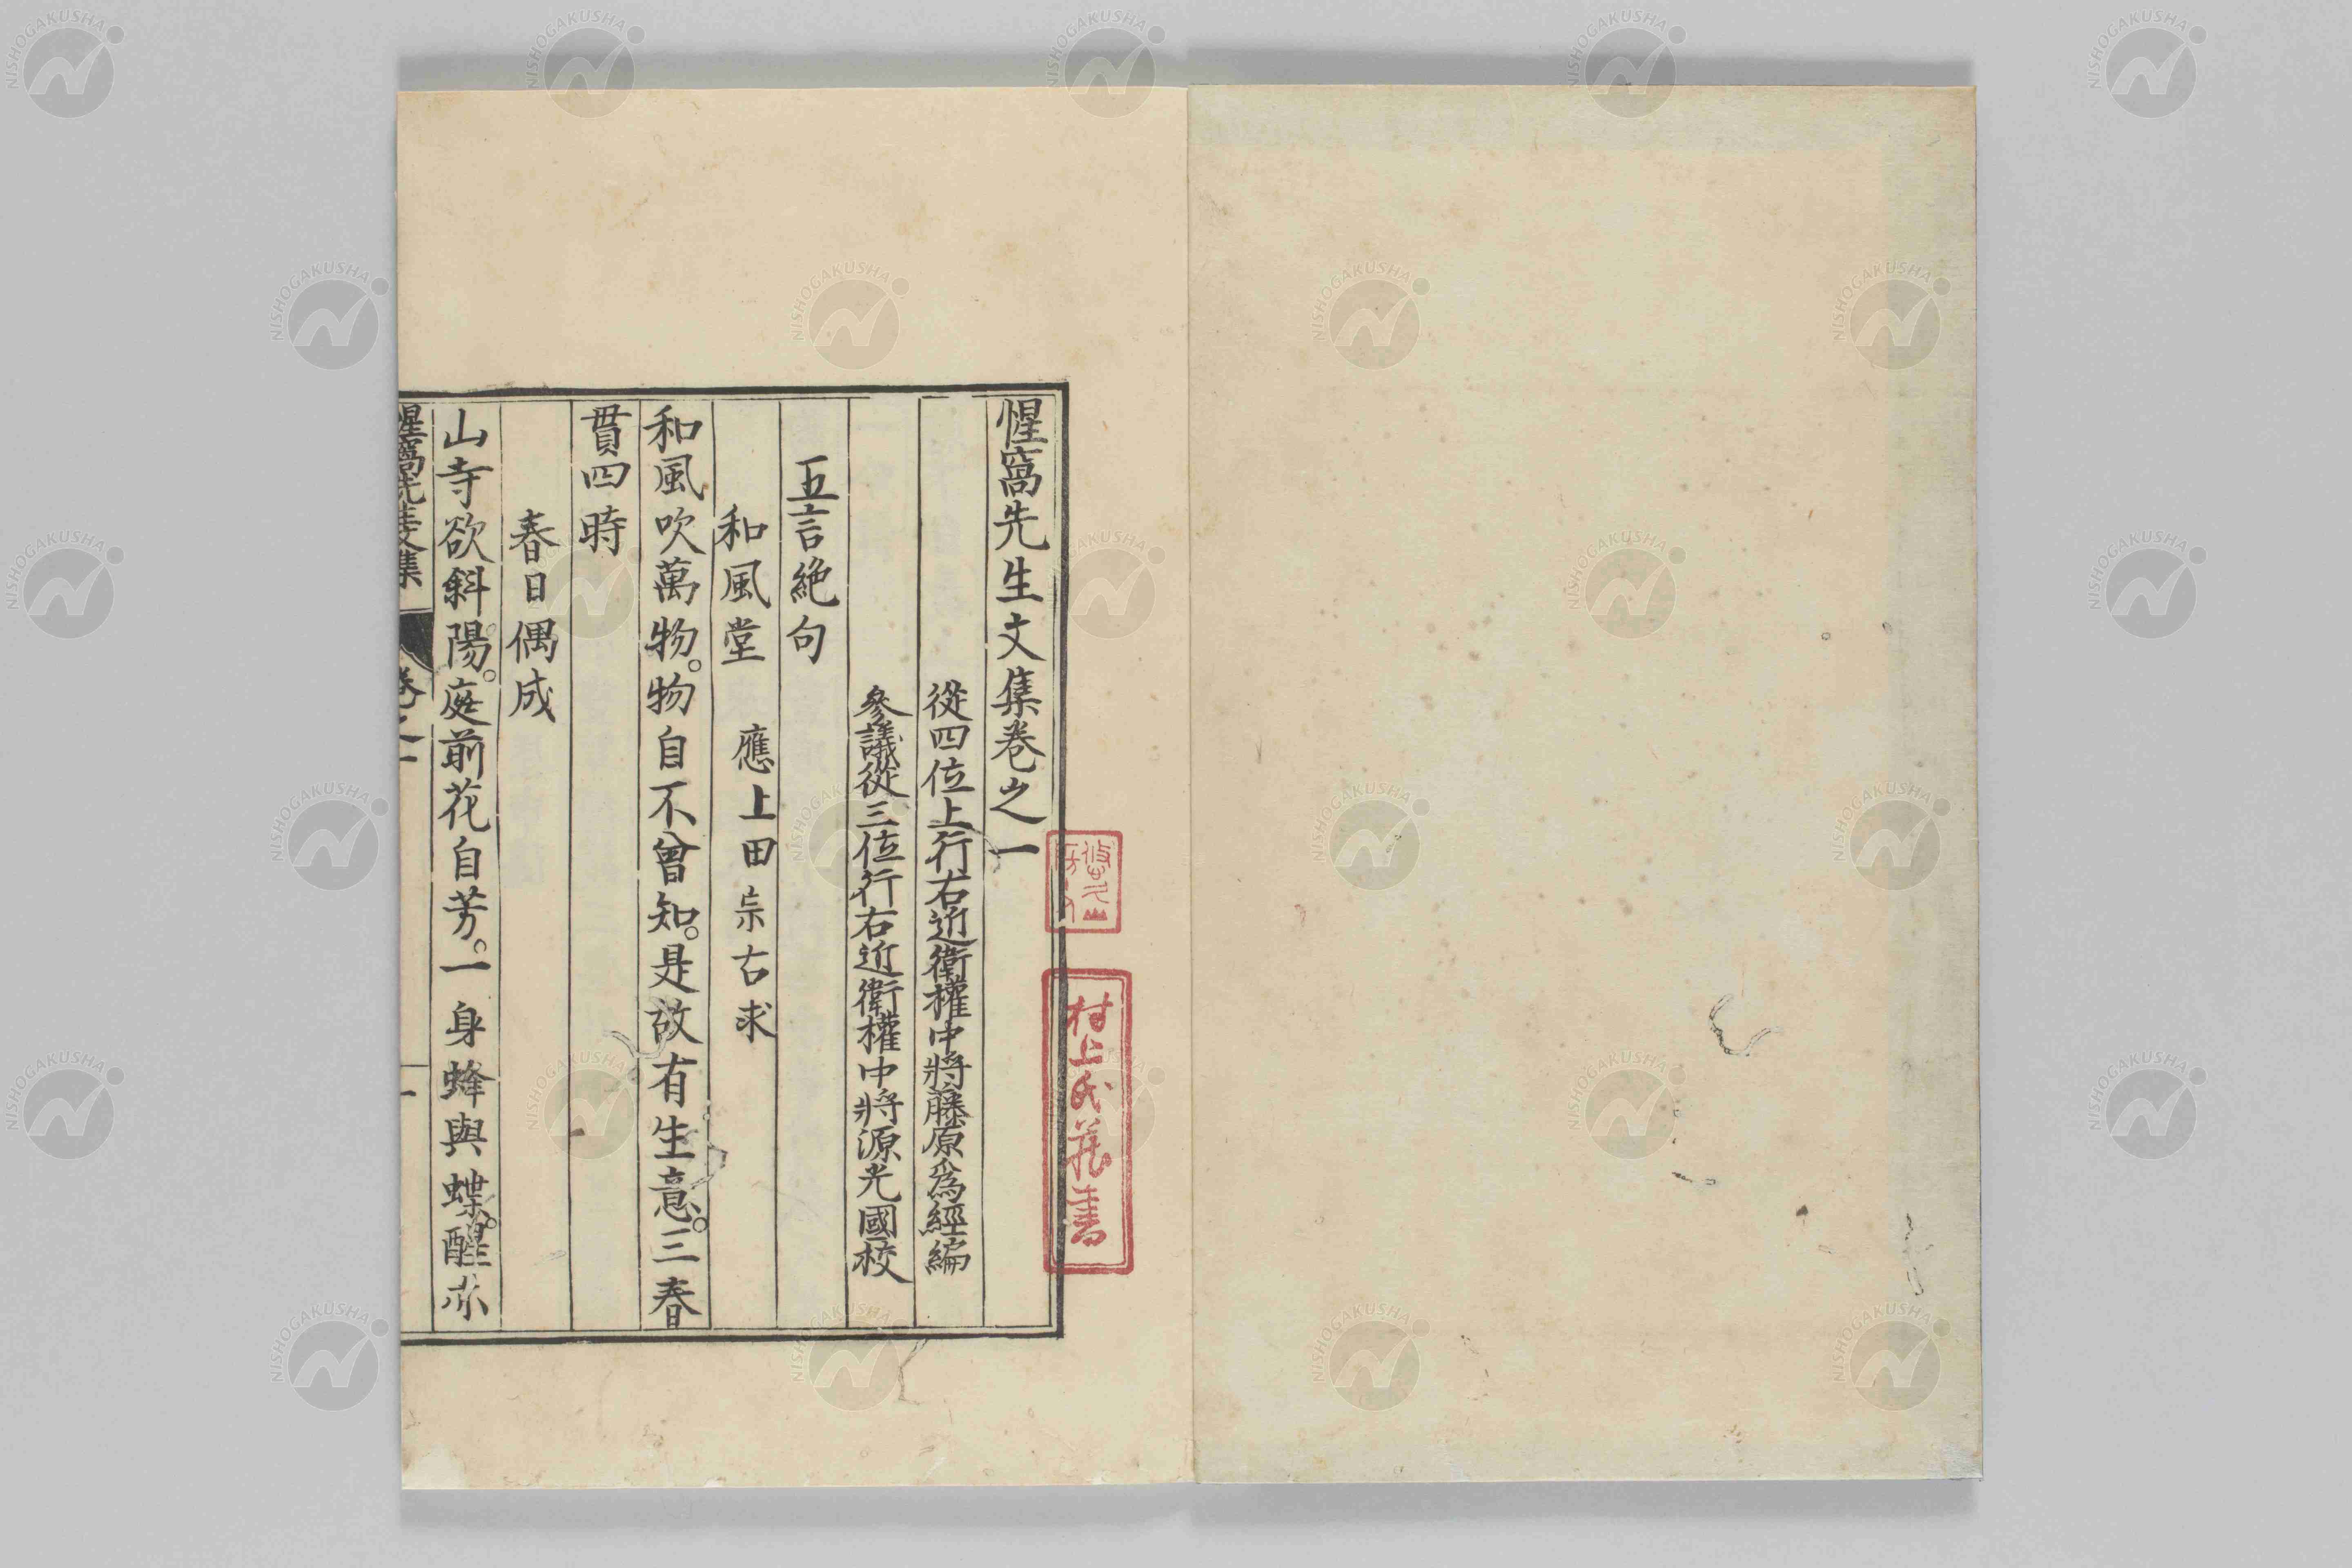 惺窩先生文集卷之一
從四位上行右近衛權中將藤原爲經編
參議從三位行右近衛權中將源光國校
五言絶句
和風堂 應上田宗古求
和風吹萬物。物自不曾知。是故有生意。三春
貫四時
春日偶成
山寺欲斜陽。庭前花自芳。一身蜂與蝶。醒亦
惺窩先生文集 卷之一 一
村上氏蔵書
NISHOGAKUSHA